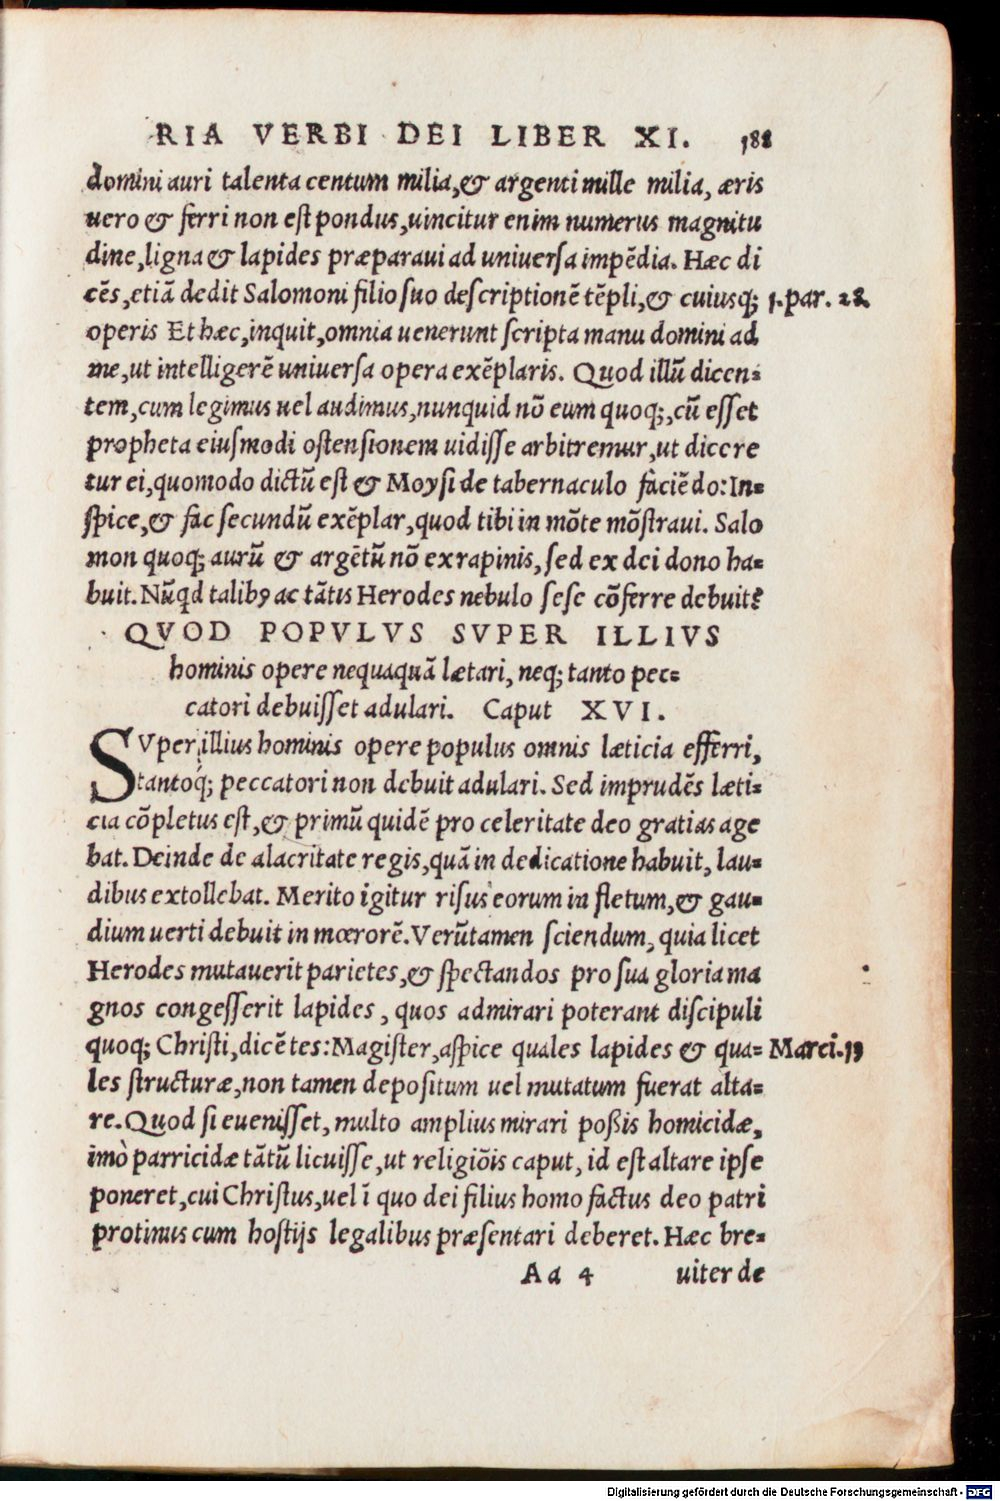 RIA VERBI DEI LIBER XI. 188
domini auri talenta centum milia,& argenti mille milia, æris
uero & ferri non est pondus,uincitur enim numerus magnitu
dine,ligna & lapides præparaui ad uniuersa impēdia. Hæc di
cēs,etiā dedit Salomoni filio suo descriptionē tēpli,& cuiusq; 1.par. 28
operis Et hæc,inquit,omnia uenerunt scripta manu domini ad
me,ut intelligerē uniuersa opera exēplaris. Quod illū dicen=
tem,cum legimus uel audimus,nunquid nō eum quoq;,cū esset
propheta eiusmodi ostensionem uidisse arbitremur,ut dicere
tur ei,quomodo dictū est & Moysi de tabernaculo faciēdo:In=
spice,& fac secundū exēplar,quod tibi in mōte mōstraui. Salo
mon quoq; aurū & argētū nō ex rapinis,sed ex dei dono ha=
buit. Nūqd talibꝰ ac tātis Herodes nebulo sese cōferre debuit?
QVOD POPVLVS SVPER ILLIVS
hominis opere nequaquā lætari, neq; tanto pec=
catori debuisset adulari. Caput XVI.
SVper illius hominis opere populus omnis læticia efferri,
tantoq́; peccatori non debuit adulari. Sed imprudēs læti=
cia cōpletus est,& primū quidē pro celeritate deo gratias age
bat. Deinde de alacritate regis,quā in dedicatione habuit, lau=
dibus extollebat. Merito igitur risus eorum in fletum,& gau=
dium uerti debuit in mœrorē. Verūtamen sciendum, quia licet
Herodes mutauerit parietes,& spectandos pro sua gloria ma
gnos congesserit lapides, quos admirari poterant discipuli
quoq; Christi,dicētes:Magister,aspice quales lapides & qua= Marci.13
les structuræ,non tamen depositum uel mutatum fuerat alta=
re. Quod si euenisset, multo amplius mirari poßis homicidæ,
imò parricidæ tātū licuisse,ut religiōis caput, id est altare ipse
poneret,cui Christus,uel ī quo dei filius homo factus deo patri
protinus cum hostijs legalibus præsentari deberet. Hæc bre=
Aa 4 uiter de
Digitalisierung gefördert durch die Deutsche Forschungsgemeinschaft - DFG